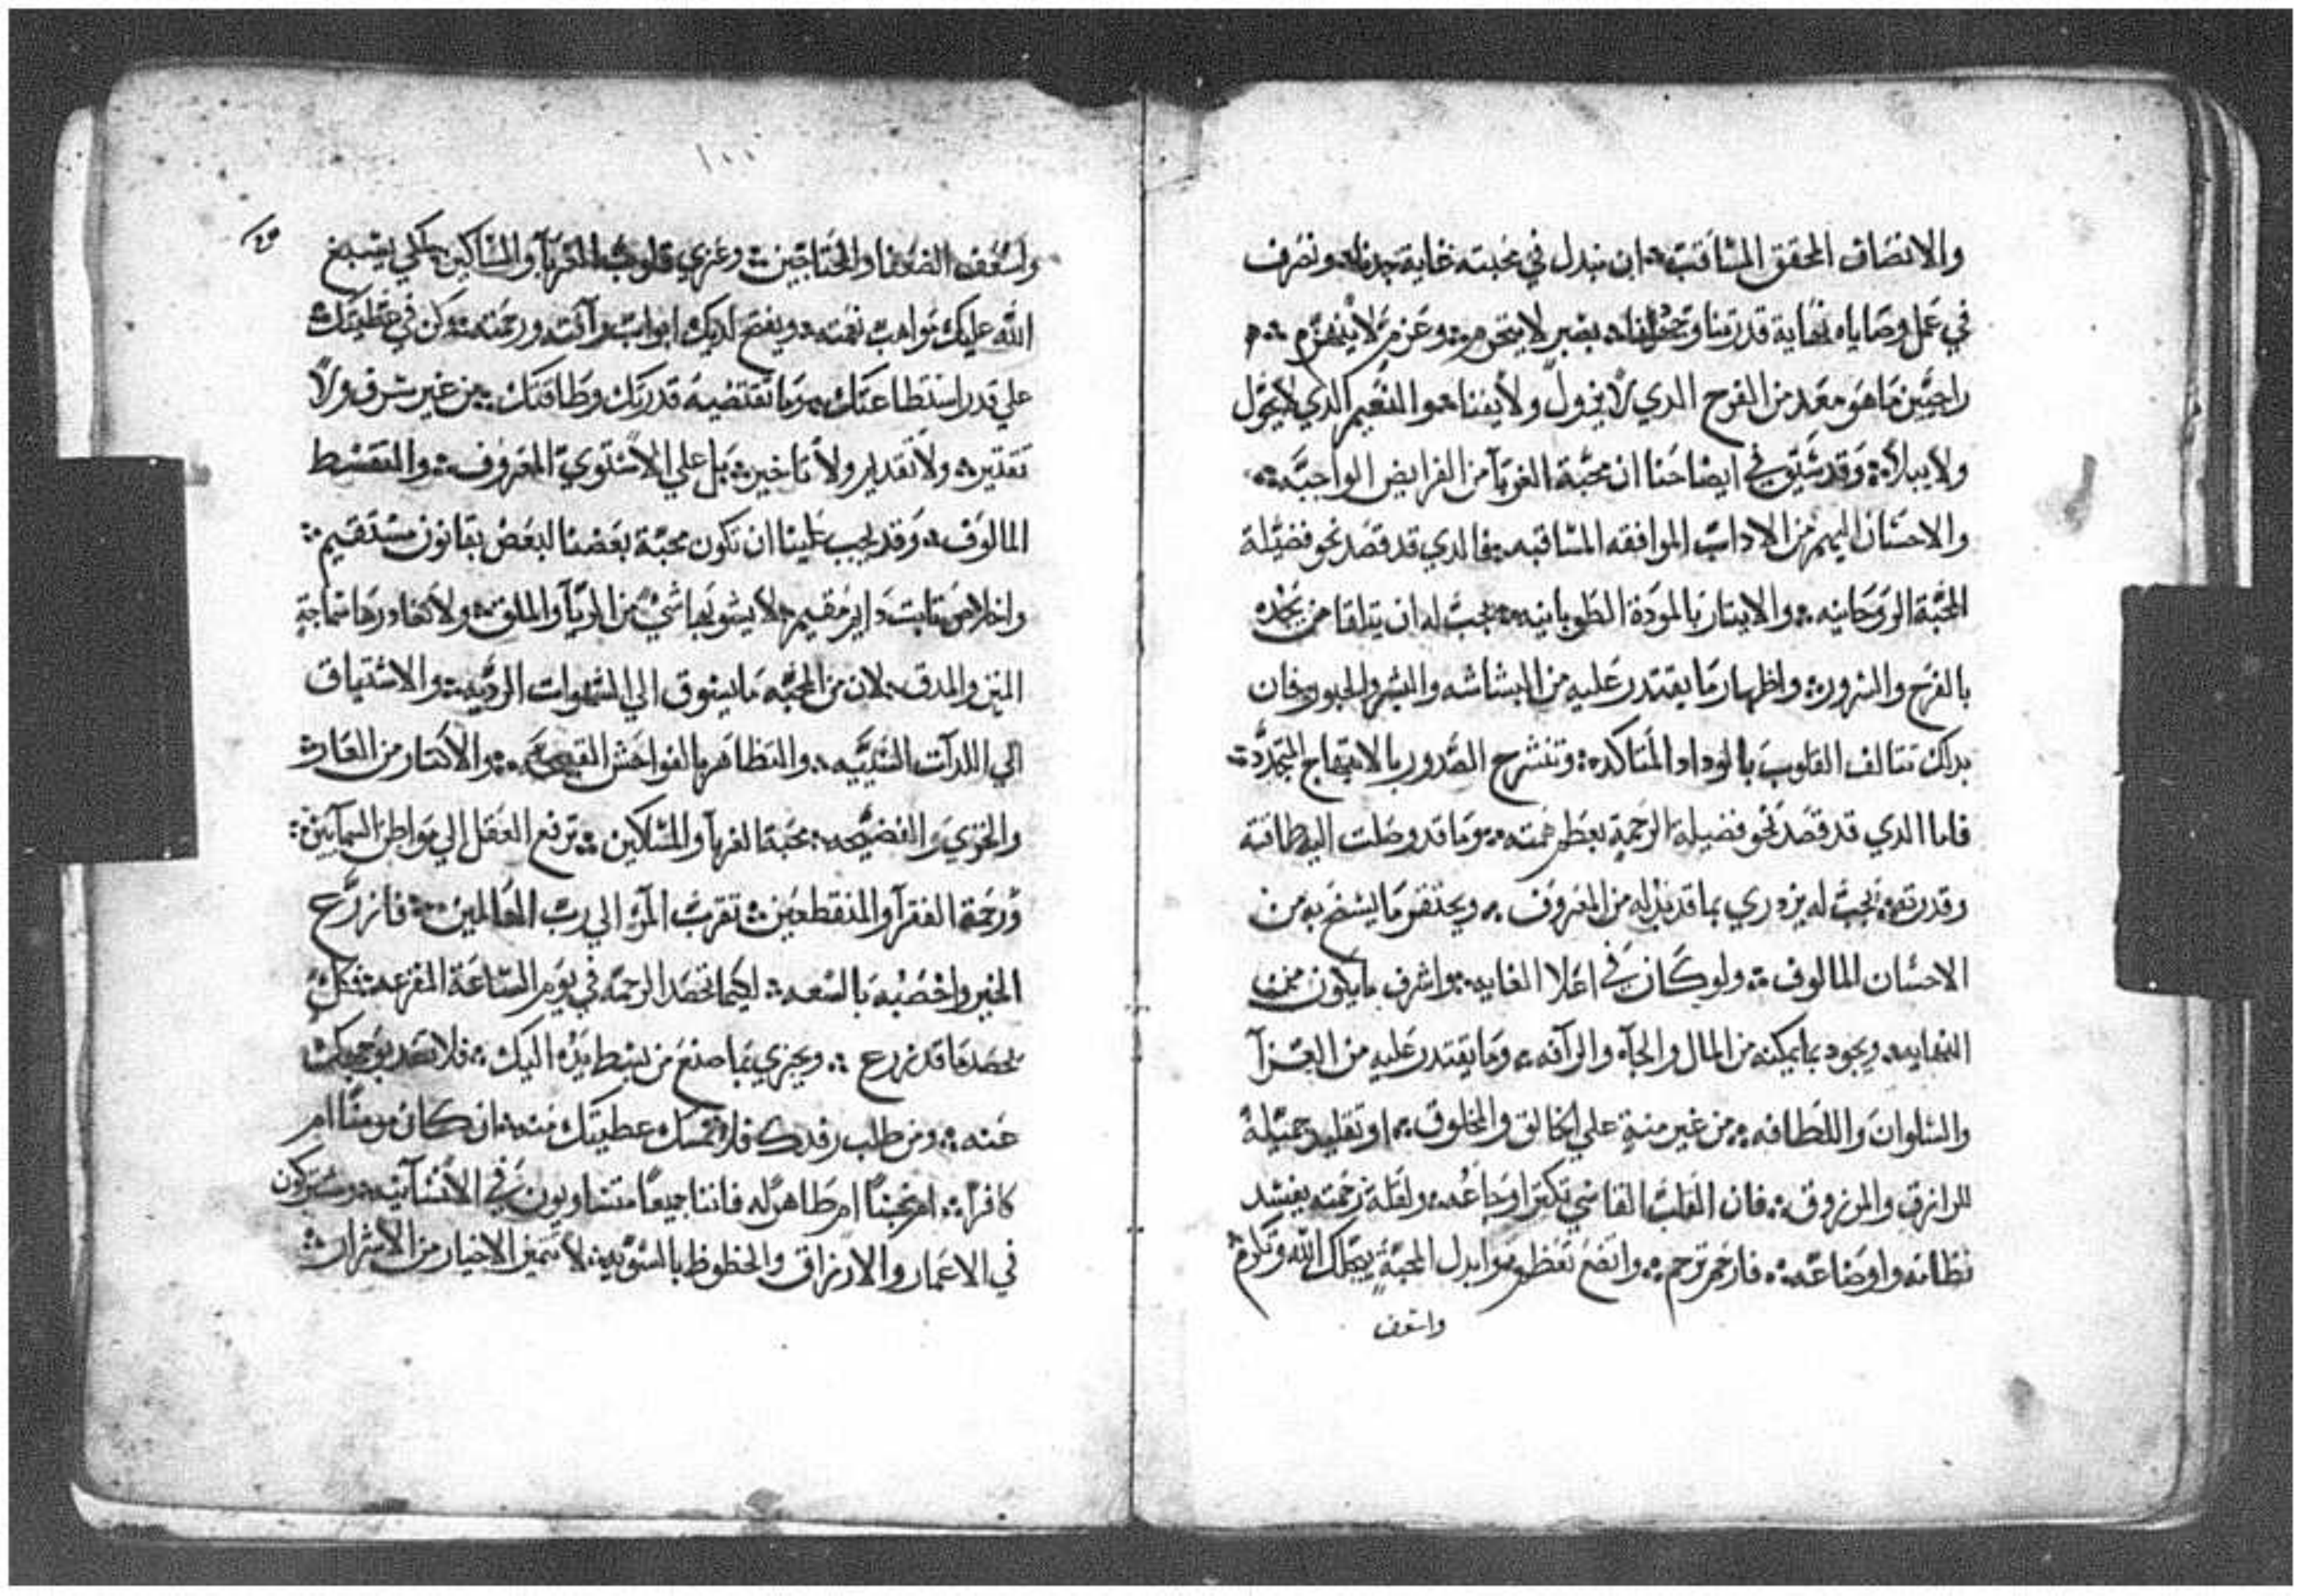 والانصاف المحقق المتناقب ان نبدل في محبته غاية جهدنا ونصرف
في عمل وصاياه نهاية قدرتنا بصبر لا ينخرم وعزم لا ينهزم
راجيين ما هو معد من الفرح الدي لا يزول ولا يفنا والنعيم الدي لا يحول
ولا يبلا وقد سبق في ايضاحنا ان محبة الغربآ من الفرايض الواجبه
والاحسان اليهم من الاداب الموافقه فالدي قد قصد نحو فضيلة
المحبة الروحانيه والايتار بالمودة الطوبانيه يجب له ان يتلقا من يجده
بالفرح والسرور واظهار ما يقتدر عليه من البشاشه والبشر والحبور فان
بدلك تتالف القلوب بالوداد المتاكد وتنشرح الصدور بالابتهاج المتجدد
فاما الدي قد قصد نحو فضيلة الرحمة همته وما قد وصلت اليه طاقته
وقدرته يجب له يزدري بما قد بدله من المعروف ويحتقر ما يسخ به من
الاحسان المالوف ولو كان في اعلا الغايه واشرف ما يكون من
النهايه ويجود بما يمكنه من المال والجاه والرآفه وما يقتدر عليه من العزآ
والسلوان واللطافه من غير منة علي الخالق والمخلوق او تقليد جميلة
للرازق والمرزوق فان القلب القاسي تكتر اوجاعه ولقلة رحمته يفسد
نظامه واوضاعه فارحم ترحم واتضع تعظم وابدل المحبة يبجلك الله وتكرم
واسعف
١٠٠
واسعف الضعفا والمحتاجين وعزي قلوب الغربآ والمساكين لكي يسبغ
الله عليك مواهب نعمته ويفتح لديك ابواب رآفته ورحمته وكن في عطيتك
علي قدر استطاعتك وما تقتضيه قدرتك وطاقتك من غير سرف ولا
تقتير ولا تقدير ولا تاخير بل علي الاستوي المعروف والتقسط
المالوف وقد يجب علينا ان تكون محبة بعضنا لبعض بقانون مستقيم
واخلاص تابت دايم مقيم لا يشوبها شي من الريآ والملق ولا تغادرها سماجة
المين والمدق لان من المحبه ما يسوق الي الشهوات الرديه والاشتياق
الي اللدآت الدنيه والتظاهر بالفواحش القبيحه والاكتار من العار
والخزي والفضيحه محبة الغربآ والمساكين ترفع العقل الي مواطن السمآيين
ورحمة الفقرآ والمنقطعين تقرب المرء الي رب العالمين فازرع
الخير واخصبه بالسعه ليكما تحصد الرحمة في يوم الساعة المفزعه فكل
يحصد ما قد زرع ويجزي بما صنع من بسط يده اليك فلا تصد بوجهك
عنه ومن طلب رفدك فلا تمسك عطيتك منه ان كان مومنا ام
كافرا ام نجسا ام طاهرا فاننا جميعا متساويون في الانسآنيه ومشتركون
في الاعمار والارزاق والحظوظ بالسويه لا تميز الاخيار من الاشرار